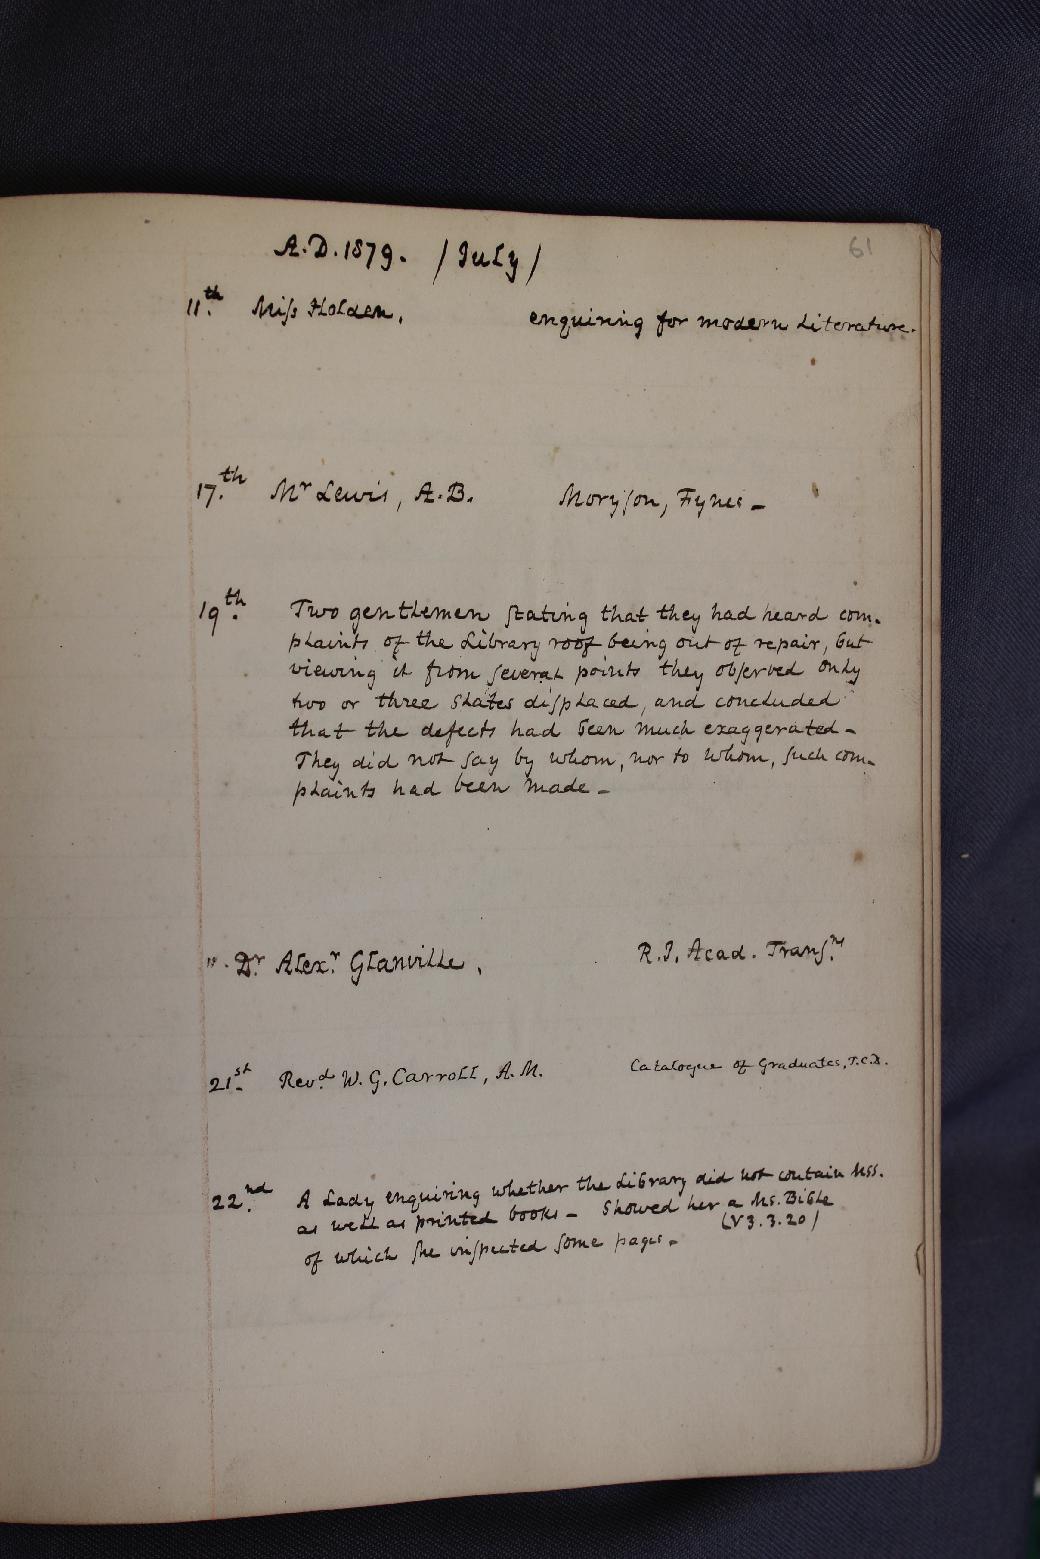 61
A.D. 1879. / July /
11th. Miss Holden. enquiring for modern Literature.
17th. Mr Lewis, A.B. Moryson, Fynes -
19th. Two gentlemen stating that they had heard com-
plaints of the Library roof being out of repair, but
viewing it from several points they observed only
two or three slates displaced, and concluded
that the defects had been much exaggerated -
They did not say by whom, nor to whom, such com-
plaints had been made -
" . Dr. Alexr. Glanville. R.I. Acad. Transns.
21st. Revd. W. G. Carroll, A.M. Catalogue of Graduates, T.C.D.
22nd. A Lady enquiring whether the Library did not contain Mss.
as well as printed books - Showed her a Ms. Bible
(V3.3.20)
of which she inspected some pages -